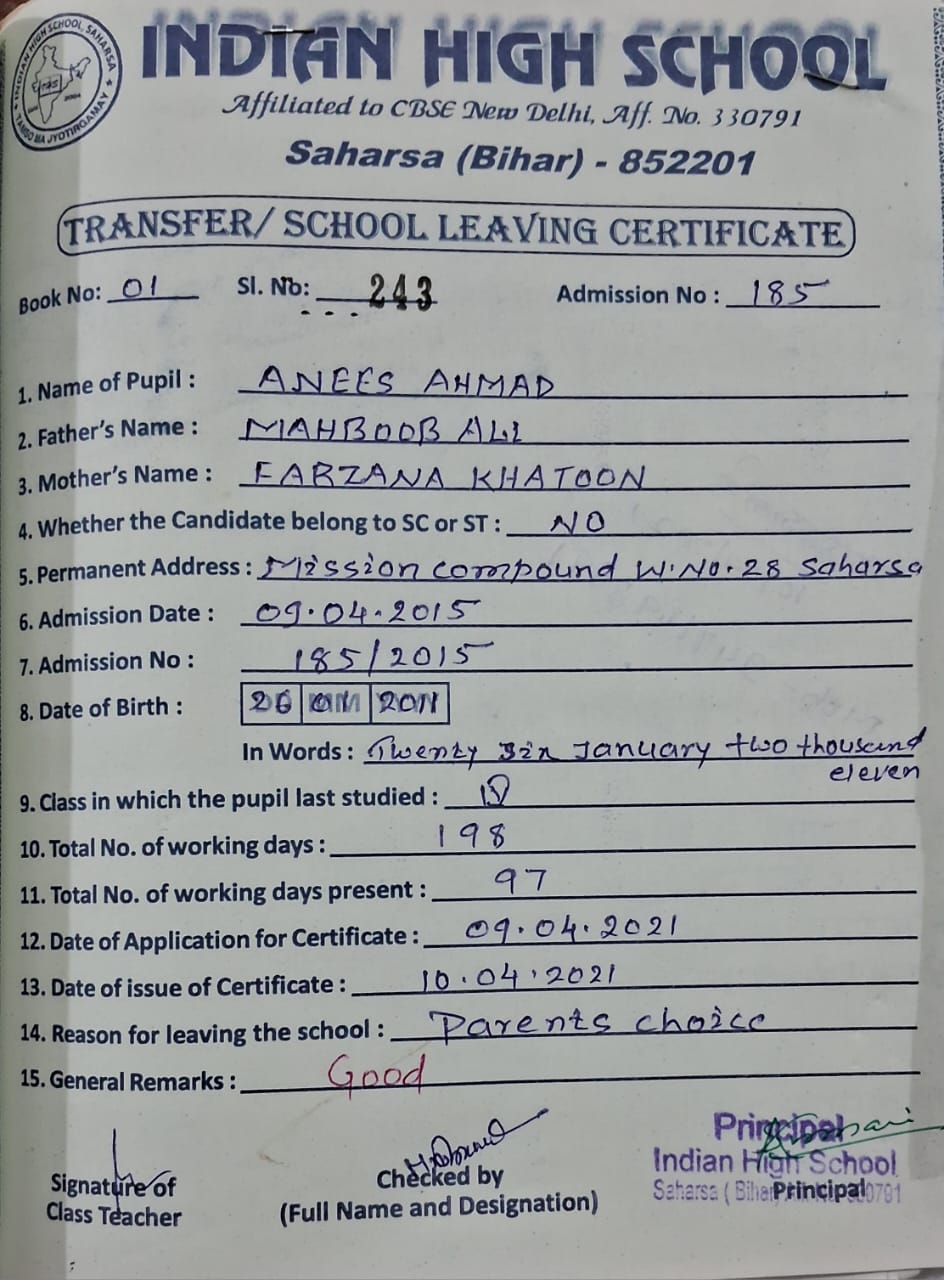 INDIAN HIGH SCHOOL SAHARSA
TAMSO MA JYOTIRGAMAY
INDIAN HIGH SCHOOL
Affiliated to CBSE New Delhi, Aff. No. 330791
Saharsa (Bihar) - 852201
TRANSFER/ SCHOOL LEAVING CERTIFICATE
Book No: 01 Sl. No: 243 Admission No : 185
1. Name of Pupil : ANEES AHMAD
2. Father's Name : MAHBOOB ALI
3. Mother's Name : FARZANA KHATOON
4. Whether the Candidate belong to SC or ST : NO
5. Permanent Address : Mission compound W.No. 28 Saharsa
6. Admission Date : 09.04.2015
7. Admission No : 185/2015
8. Date of Birth : 26 01 2011
In Words : Twenty Six January two thousand
eleven
9. Class in which the pupil last studied : IV
10. Total No. of working days : 198
11. Total No. of working days present : 97
12. Date of Application for Certificate : 09.04.2021
13. Date of issue of Certificate : 10.04.2021
14. Reason for leaving the school : Parents choice
15. General Remarks : Good
Principal
Indian High School
Saharsa ( Bihar) 0791
Signature of
Class Teacher
Checked by
(Full Name and Designation)
Principal